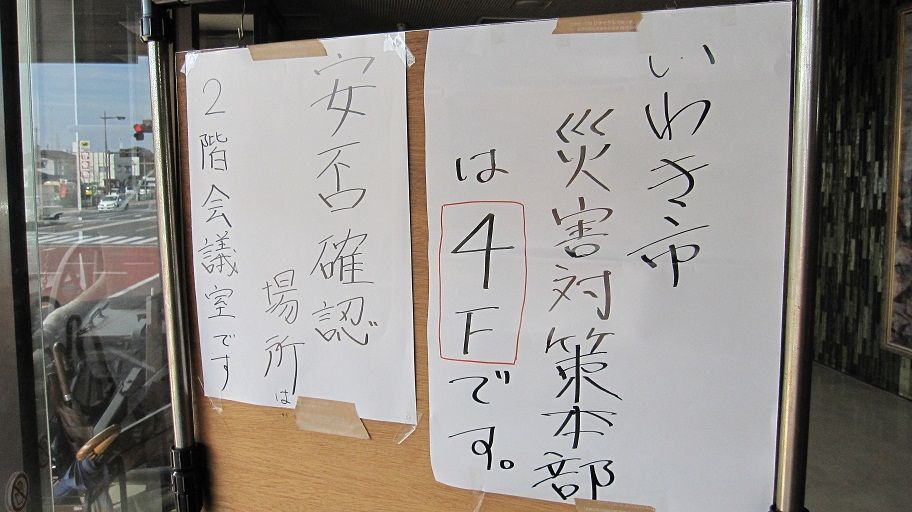 いわき市
災害対策本部
は4Fです。
安否確認
場所は
2階会議室です